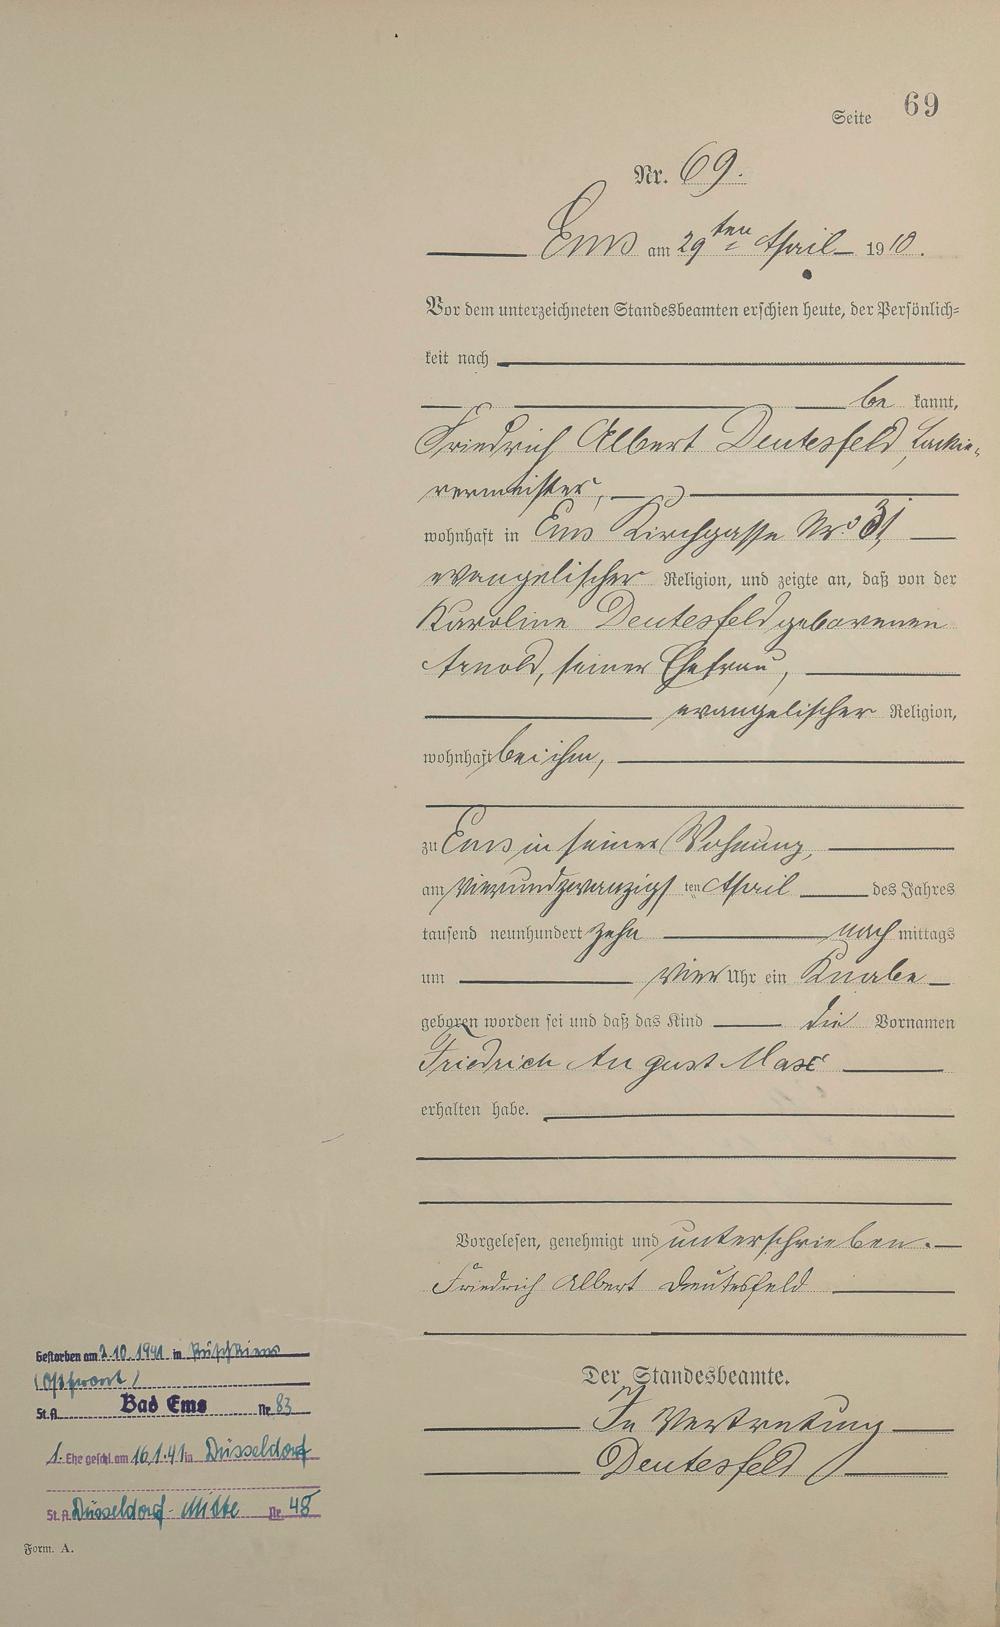 Seite 69
Nr. 69.
Ems am 29ten April 1910.
Vor dem unterzeichneten Standesbeamten erschien heute, der Persönlich=
keit nach
be kannt,
Friedrich Albert Deutesfeld, Lackie-
rermeister,
wohnhaft in Ems Kirchgasse No. 31
evangelischer Religion, und zeigte an, daß von der
Karoline Deutesfeld geborenen
Arnold, seiner Ehefrau,
evangelischer Religion,
wohnhaft bei ihm,
zu Ems in seiner Wohnung,
am vierundzwanzigsten April des Jahres
tausend neunhundert zehn nach mittags
um vier Uhr ein Knabe
geboren worden sei und daß das Kind die Vornamen
Friedrich August Max
erhalten habe.
Vorgelesen, genehmigt und unterschrieben.
Friedrich Albert Deutesfeld
Der Standesbeamte.
In Vertretung
Deutesfeld
Gestorben am 2.10.1941 in
(Ostfront)
St.A. Bad Ems Nr. 83
1. Ehe geschl. am 16.1.41 in Düsseldorf
St.A. Düsseldorf-Mitte Nr. 48
Form. A.